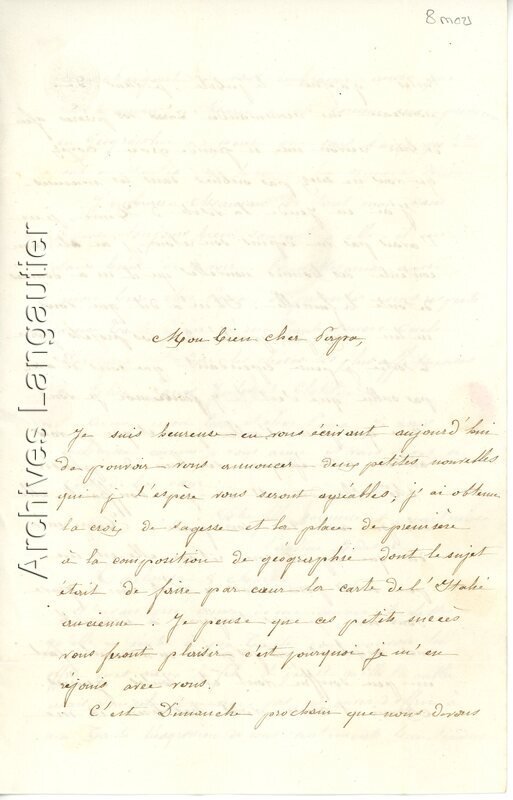 8 mars
Mon bien cher Papa,
Je suis heureuse en vous écrivant aujourd'hui
de pouvoir vous annoncer deux petites nouvelles
qui je l'espère vous seront agréables; j'ai obtenu
la croix de sagesse et la place de première
à la composition de géographie dont le sujet
était de faire par cœur la carte de l'Italie
ancienne. Je pense que ces petits succès
vous feront plaisir c'est pourquoi je m'en
réjouis avec vous.
C'est Dimanche prochain que nous devons
Archives Langautier